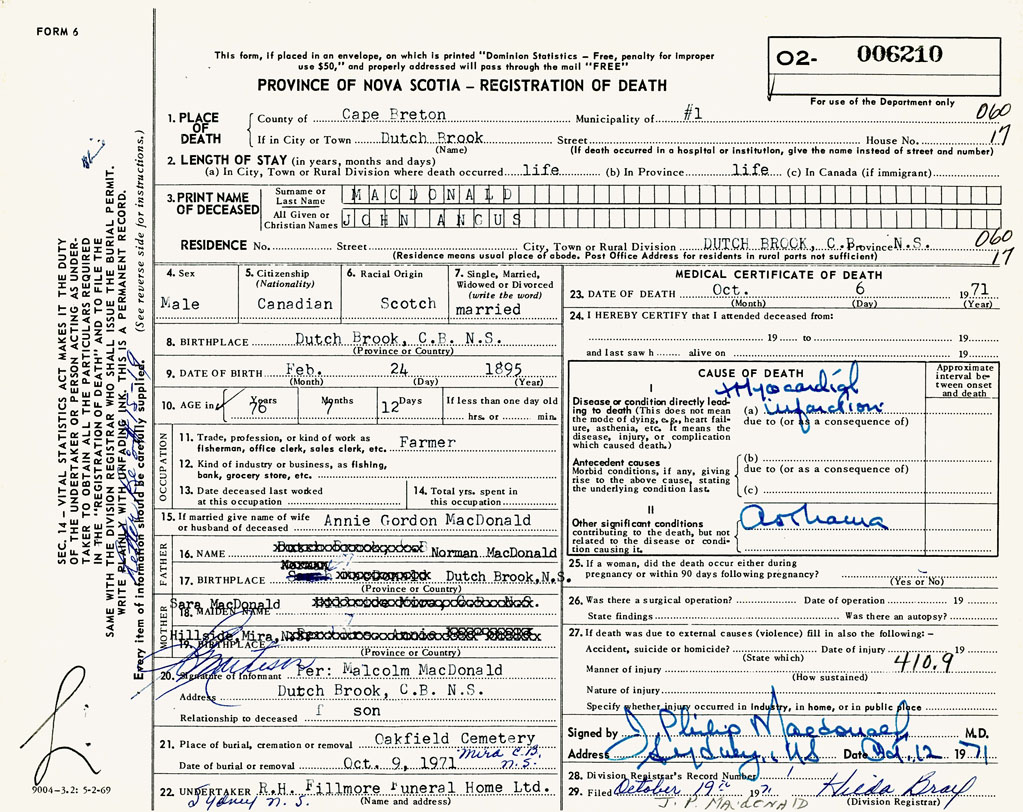 FORM 6
This form, if placed in an envelope, on which is printed "Dominion Statistics – Free, penalty for improper
use $50," and properly addressed will pass through the mail "FREE"
O2- 006210
For use of the Department only
PROVINCE OF NOVA SCOTIA – REGISTRATION OF DEATH
SEC. 14 – VITAL STATISTICS ACT MAKES IT THE DUTY
OF THE UNDERTAKER OR PERSON ACTING AS UNDER-
TAKER TO OBTAIN ALL THE PARTICULARS REQUIRED
IN THE "REGISTRATION OF DEATH" AND TO FILE THE
SAME WITH THE DIVISION REGISTRAR WHO SHALL ISSUE THE BURIAL PERMIT.
WRITE PLAINLY WITH UNFADING INK. THIS IS A PERMANENT RECORD.
Every item of information should be carefully supplied. (See reverse side for instructions.)
1. PLACE OF DEATH
County of Cape Breton Municipality of #1 060
If in City or Town Dutch Brook Street House No. 17
(Name) (If death occurred in a hospital or institution, give the name instead of street and number)
2. LENGTH OF STAY (in years, months and days)
(a) In City, Town or Rural Division where death occurred life (b) In Province life (c) In Canada (if immigrant)
3. PRINT NAME OF DECEASED
Surname or Last Name MACDONALD
All Given or Christian Names JOHN ANGUS
RESIDENCE No. Street City, Town or Rural Division DUTCH BROOK, C.B. Province N.S. 060
(Residence means usual place of abode. Post Office Address for residents in rural parts not sufficient) 17
4. Sex Male
5. Citizenship (Nationality) Canadian
6. Racial Origin Scotch
7. Single, Married, Widowed or Divorced (write the word) married
8. BIRTHPLACE Dutch Brook, C.B. N.S.
(Province or Country)
9. DATE OF BIRTH Feb. 24 1895
(Month) (Day) (Year)
10. AGE in Years 76 Months 7 Days 12 If less than one day old
hrs. or min.
OCCUPATION
11. Trade, profession, or kind of work as
fisherman, office clerk, sales clerk, etc. Farmer
12. Kind of industry or business, as fishing,
bank, grocery store, etc.
13. Date deceased last worked
at this occupation
14. Total yrs. spent in
this occupation
15. If married give name of wife
or husband of deceased Annie Gordon MacDonald
FATHER
16. NAME Norman MacDonald
Norman
17. BIRTHPLACE Dutch Brook, N.S.
(Province or Country)
MOTHER
Sara MacDonald
18. MAIDEN NAME
Hillside, Mira, N.S.
19. BIRTHPLACE
(Province or Country)
20. Signature of Informant Per: Malcolm MacDonald
Address Dutch Brook, C.B. N.S.
Relationship to deceased son
21. Place of burial, cremation or removal Oakfield Cemetery
Mira C.B.
N.S.
Date of burial or removal Oct. 9, 1971
22. UNDERTAKER R.H. Fillmore Funeral Home Ltd.
Sydney N.S. (Name and address)
9004–3.2: 5-2-69
MEDICAL CERTIFICATE OF DEATH
23. DATE OF DEATH Oct. 6 1971
(Month) (Day) (Year)
24. I HEREBY CERTIFY that I attended deceased from:
19 to 19
and last saw h alive on 19
CAUSE OF DEATH
Approximate interval between onset and death
I
Disease or condition directly leading to death (This does not mean the mode of dying, e.g., heart failure, asthenia, etc. It means the disease, injury, or complication which caused death.)
Myocardial
(a) infarction
due to (or as a consequence of)
Antecedent causes
Morbid conditions, if any, giving rise to the above cause, stating the underlying condition last.
(b)
due to (or as a consequence of)
(c)
II
Other significant conditions contributing to the death, but not related to the disease or condition causing it.
Asthama
25. If a woman, did the death occur either during
pregnancy or within 90 days following pregnancy?
(Yes or No)
26. Was there a surgical operation? Date of operation 19
State findings Was there an autopsy?
27. If death was due to external causes (violence) fill in also the following: –
Accident, suicide or homicide? Date of injury 19
(State which) 410.9
Manner of injury
(How sustained)
Nature of injury
Specify whether injury occurred in Industry, in home, or in public place
Signed by J. Philip Macdonald M.D.
Address Sydney, NS Date Oct. 12 1971
28. Division Registrar's Record Number 1
29. Filed October 19th 1971 Hilda Bray
J. P. MACDONALD (Division Registrar)